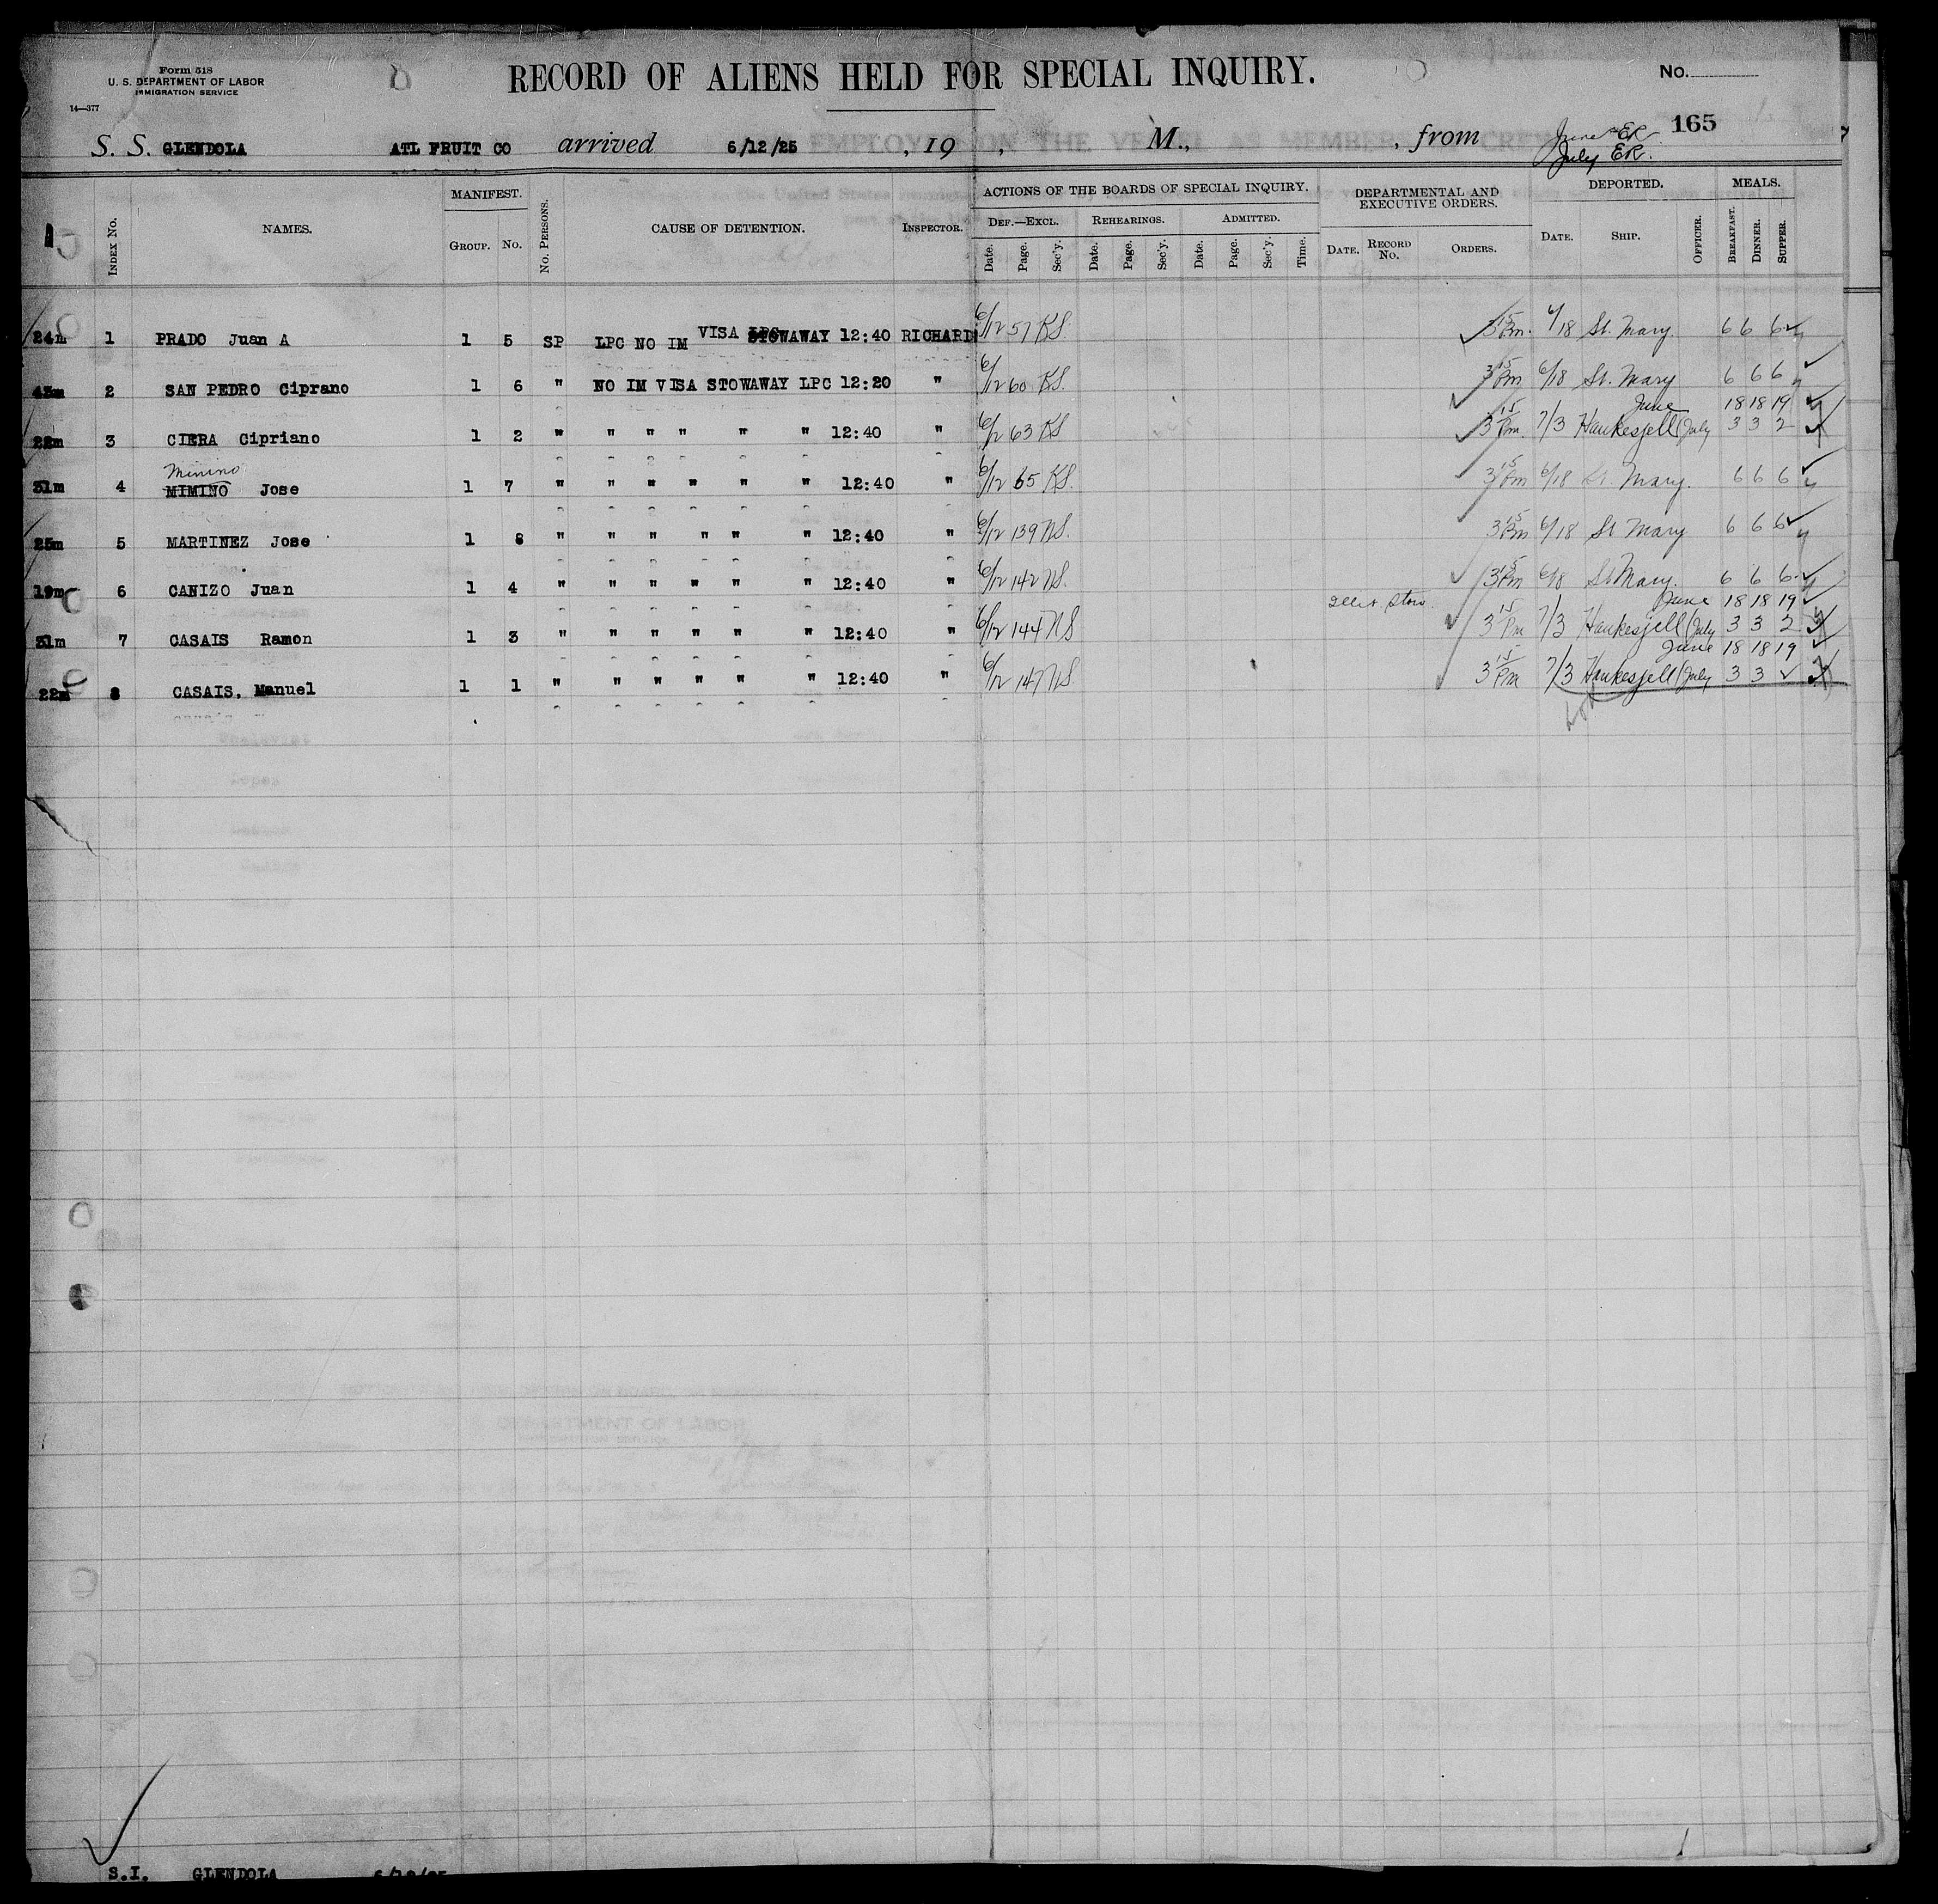 Form 518
U. S. DEPARTMENT OF LABOR
IMMIGRATION SERVICE
14—377
RECORD OF ALIENS HELD FOR SPECIAL INQUIRY.
No.
165
S. S. GLENDOLA ATL FRUIT CO arrived 6/12/25, 19 , M., , from
June ER
July ER.
INDEX NO. NAMES. MANIFEST. GROUP. NO. NO. PERSONS. CAUSE OF DETENTION. INSPECTOR.
ACTIONS OF THE BOARDS OF SPECIAL INQUIRY. DEF.—EXCL. Date. Page. Sec'y. REHEARINGS. Date. Page. Sec'y. ADMITTED. Date. Page. Sec'y. Time.
DEPARTMENTAL AND EXECUTIVE ORDERS. DATE. RECORD NO. ORDERS.
DEPORTED. DATE. SHIP. OFFICER. MEALS. BREAKFAST. DINNER. SUPPER.
24m 1 PRADO Juan A 1 5 SP LPC NO IM VISA STOWAWAY 12:40 RICHARD 6/12 57 KS. 3 15 Pm. 6/18 St. Mary. 6 6 6
43m 2 SAN PEDRO Ciprano 1 6 " NO IM VISA STOWAWAY LPC 12:20 " 6/12 60 KS. 3 15 Pm 6/18 St. Mary 6 6 6
June 18 18 19
22m 3 CIERA Cipriano 1 2 " " " " " " 12:40 " 6/12 63 KS 3 15 Pm. 7/3 Haukesjell July 3 3 2
Minino
31m 4 MIMINO Jose 1 7 " " " " " " 12:40 " 6/12 65 KS. 3 15 Pm 6/18 St. Mary. 6 6 6
25m 5 MARTINEZ Jose 1 8 " " " " " " 12:40 " 6/12 139 NS. 3 15 Pm 6/18 St Mary 6 6 6
19m 6 CANIZO Juan 1 4 " " " " " " 12:40 " 6/12 142 NS. 3 15 Pm 6/18 St Mary. 6 6 6
June 18 18 19
31m 7 CASAIS Ramon 1 3 " " " " " " 12:40 " 6/12 144 NS 3 15 Pm 7/3 Haukesjell July 3 3 2
June 18 18 19
22m 8 CASAIS, Manuel 1 1 " " " " " " 12:40 " 6/12 147 NS 3 15 Pm 7/3 Haukesjell July 3 3
S.I. GLENDOLA